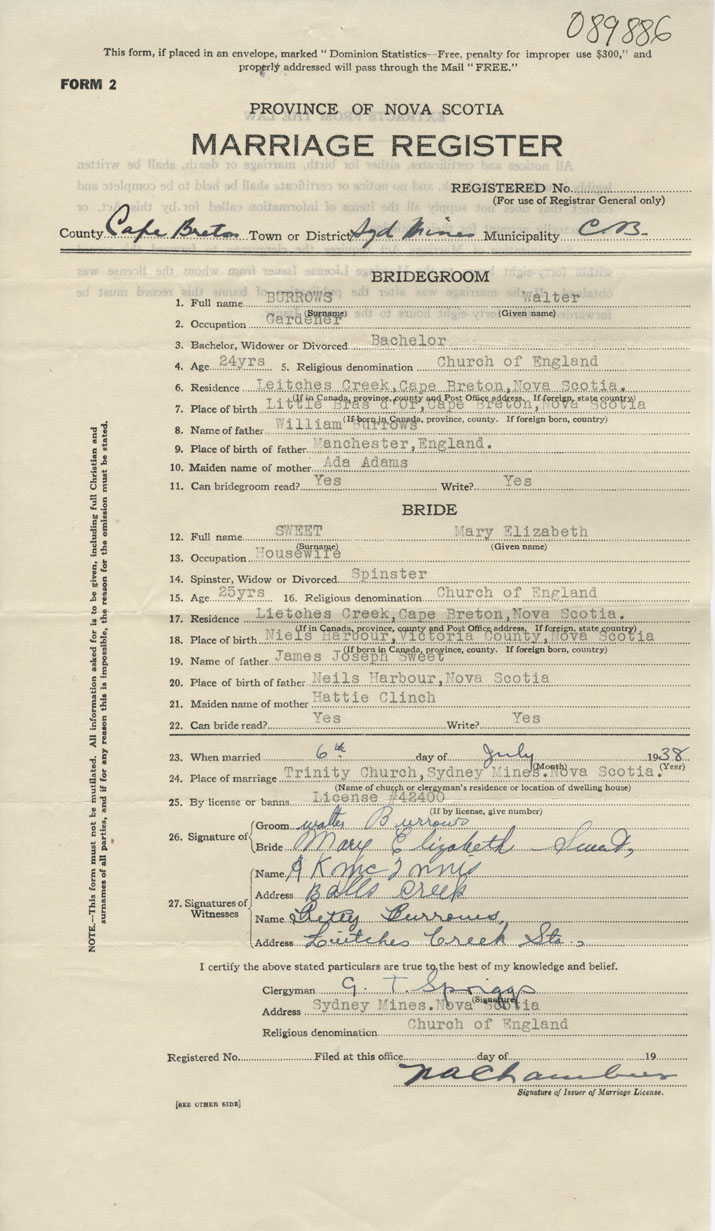 089886
This form, if placed in an envelope, marked "Dominion Statistics—Free, penalty for improper use $300," and
properly addressed will pass through the Mail "FREE."
FORM 2
PROVINCE OF NOVA SCOTIA
MARRIAGE REGISTER
REGISTERED No.
(For use of Registrar General only)
County Cape Breton Town or District Syd Mines Municipality C.B.
BRIDEGROOM
1. Full name BURROWS Walter
(Surname) (Given name)
2. Occupation Gardener
3. Bachelor, Widower or Divorced Bachelor
4. Age 24yrs 5. Religious denomination Church of England
6. Residence Leitches Creek,Cape Breton,Nova Scotia.
(If in Canada, province, county and Post Office address. If foreign, state country)
7. Place of birth Little Bras d'Or,Cape Breton,Nova Scotia
(If born in Canada, province, county. If foreign born, country)
8. Name of father William Burrows
9. Place of birth of father Manchester,England.
10. Maiden name of mother Ada Adams
11. Can bridegroom read? Yes Write? Yes
BRIDE
12. Full name SWEET Mary Elizabeth
(Surname) (Given name)
13. Occupation Housewife
14. Spinster, Widow or Divorced Spinster
15. Age 25yrs 16. Religious denomination Church of England
17. Residence Lietches Creek,Cape Breton,Nova Scotia.
(If in Canada, province, county and Post Office address. If foreign, state country)
18. Place of birth Niels Harbour,Victoria County,Nova Scotia
(If born in Canada, province, county. If foreign born, country)
19. Name of father James Joseph Sweet
20. Place of birth of father Neils Harbour,Nova Scotia
21. Maiden name of mother Hattie Clinch
22. Can bride read? Yes Write? Yes
23. When married 6th day of July 1938
(Month) (Year)
24. Place of marriage Trinity Church,Sydney Mines.Nova Scotia.
(Name of church or clergyman's residence or location of dwelling house)
25. By license or banns License #42400
(If by license, give number)
26. Signature of Groom Walter Burrows
Bride Mary Elizabeth Sweet,
27. Signatures of Witnesses Name A K McInnis
Address Balls Creek
Name Betty Burrows,
Address Leitches Creek Sta.,
I certify the above stated particulars are true to the best of my knowledge and belief.
Clergyman G. T. Spriggs
(Signature)
Address Sydney Mines.Nova Scotia
Religious denomination Church of England
Registered No. Filed at this office day of 19
Signature of Issuer of Marriage License.
[SEE OTHER SIDE]
NOTE.—This form must not be mutilated. All information asked for is to be given, including full Christian and
surnames of all parties, and if for any reason this is impossible, the reason for the omission must be stated.